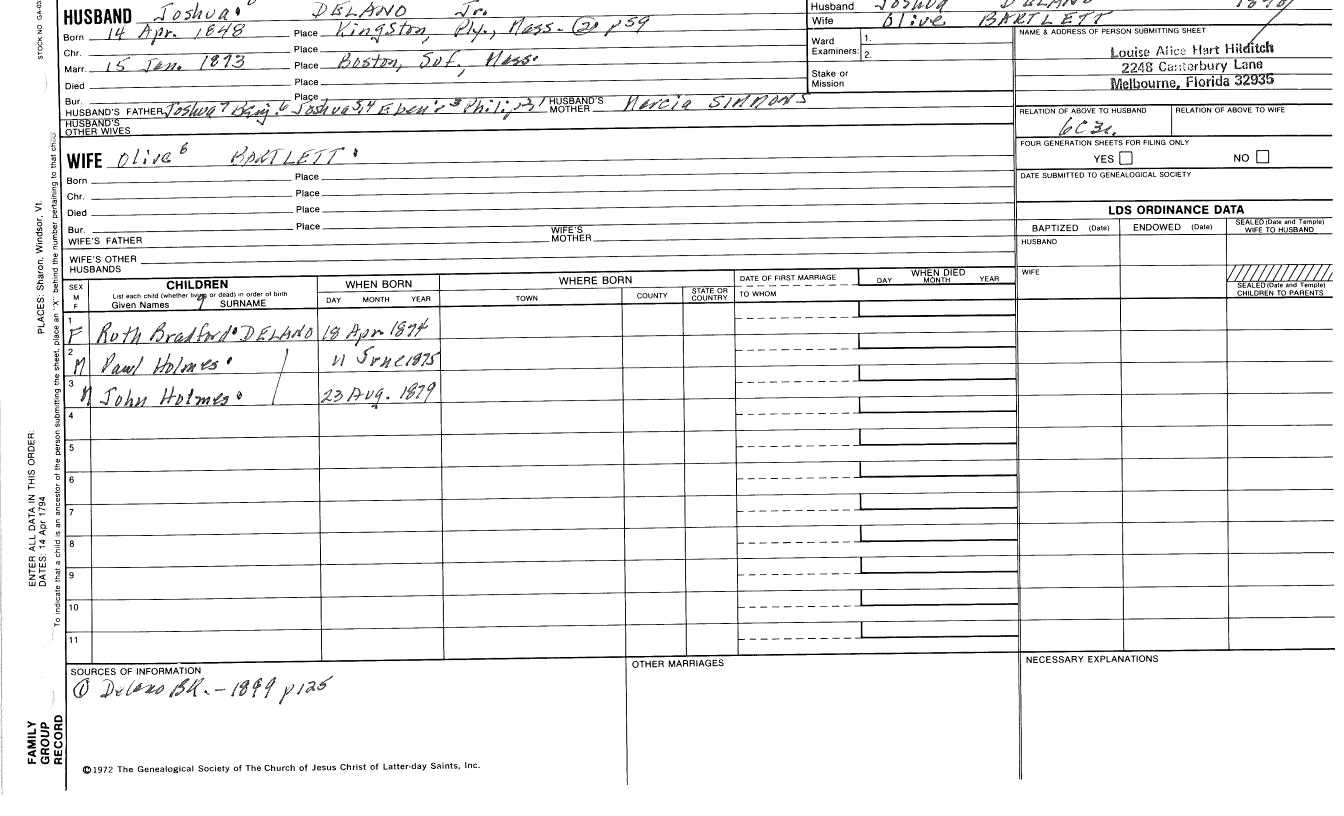 HUSBAND Joshua DELANO Jr.
Born 14 Apr. 1848 Place Kingston, Ply., Mass. (2) p59
Chr. Place
Marr. 15 Jan. 1873 Place Boston, Suf., Mass.
Died Place
Bur. Place
HUSBAND'S FATHER Joshua 7 Benj. 6 Joshua 5,4 Eben'r 3 Philip 2,1 HUSBAND'S MOTHER Mercia SIMMONS
HUSBAND'S OTHER WIVES
Husband Joshua DELANO
Wife Olive BARTLETT
Ward 1.
Examiners: 2.
Stake or Mission
NAME & ADDRESS OF PERSON SUBMITTING SHEET
Louise Alice Hart Hilditch
2248 Canterbury Lane
Melbourne, Florida 32935
RELATION OF ABOVE TO HUSBAND RELATION OF ABOVE TO WIFE
FOUR GENERATION SHEETS FOR FILING ONLY
YES NO
DATE SUBMITTED TO GENEALOGICAL SOCIETY
WIFE Olive 6 BARTLETT
Born Place
Chr. Place
Died Place
Bur. Place
WIFE'S FATHER WIFE'S MOTHER
WIFE'S OTHER HUSBANDS
LDS ORDINANCE DATA
BAPTIZED (Date) ENDOWED (Date) SEALED (Date and Temple) WIFE TO HUSBAND
HUSBAND
WIFE
SEALED (Date and Temple) CHILDREN TO PARENTS
SEX M F
CHILDREN
List each child (whether living or dead) in order of birth
Given Names 9 SURNAME
WHEN BORN
DAY MONTH YEAR
WHERE BORN
TOWN COUNTY STATE OR COUNTRY
DATE OF FIRST MARRIAGE
TO WHOM
WHEN DIED
DAY MONTH YEAR
1 F Ruth Bradford DELANO 18 Apr 1874
2 M Paul Holmes 11 June 1875
3 M John Holmes 23 Aug. 1879
4
5
6
7
8
9
10
11
SOURCES OF INFORMATION
① Delano BK. - 1899 p125
OTHER MARRIAGES
NECESSARY EXPLANATIONS
©1972 The Genealogical Society of The Church of Jesus Christ of Latter-day Saints, Inc.
FAMILY GROUP RECORD
ENTER ALL DATA IN THIS ORDER:
DATES: 14 Apr 1794
PLACES: Sharon, Windsor, Vt.
To indicate that a child is an ancestor of the person submitting the sheet, place an "X" behind the number pertaining to that child